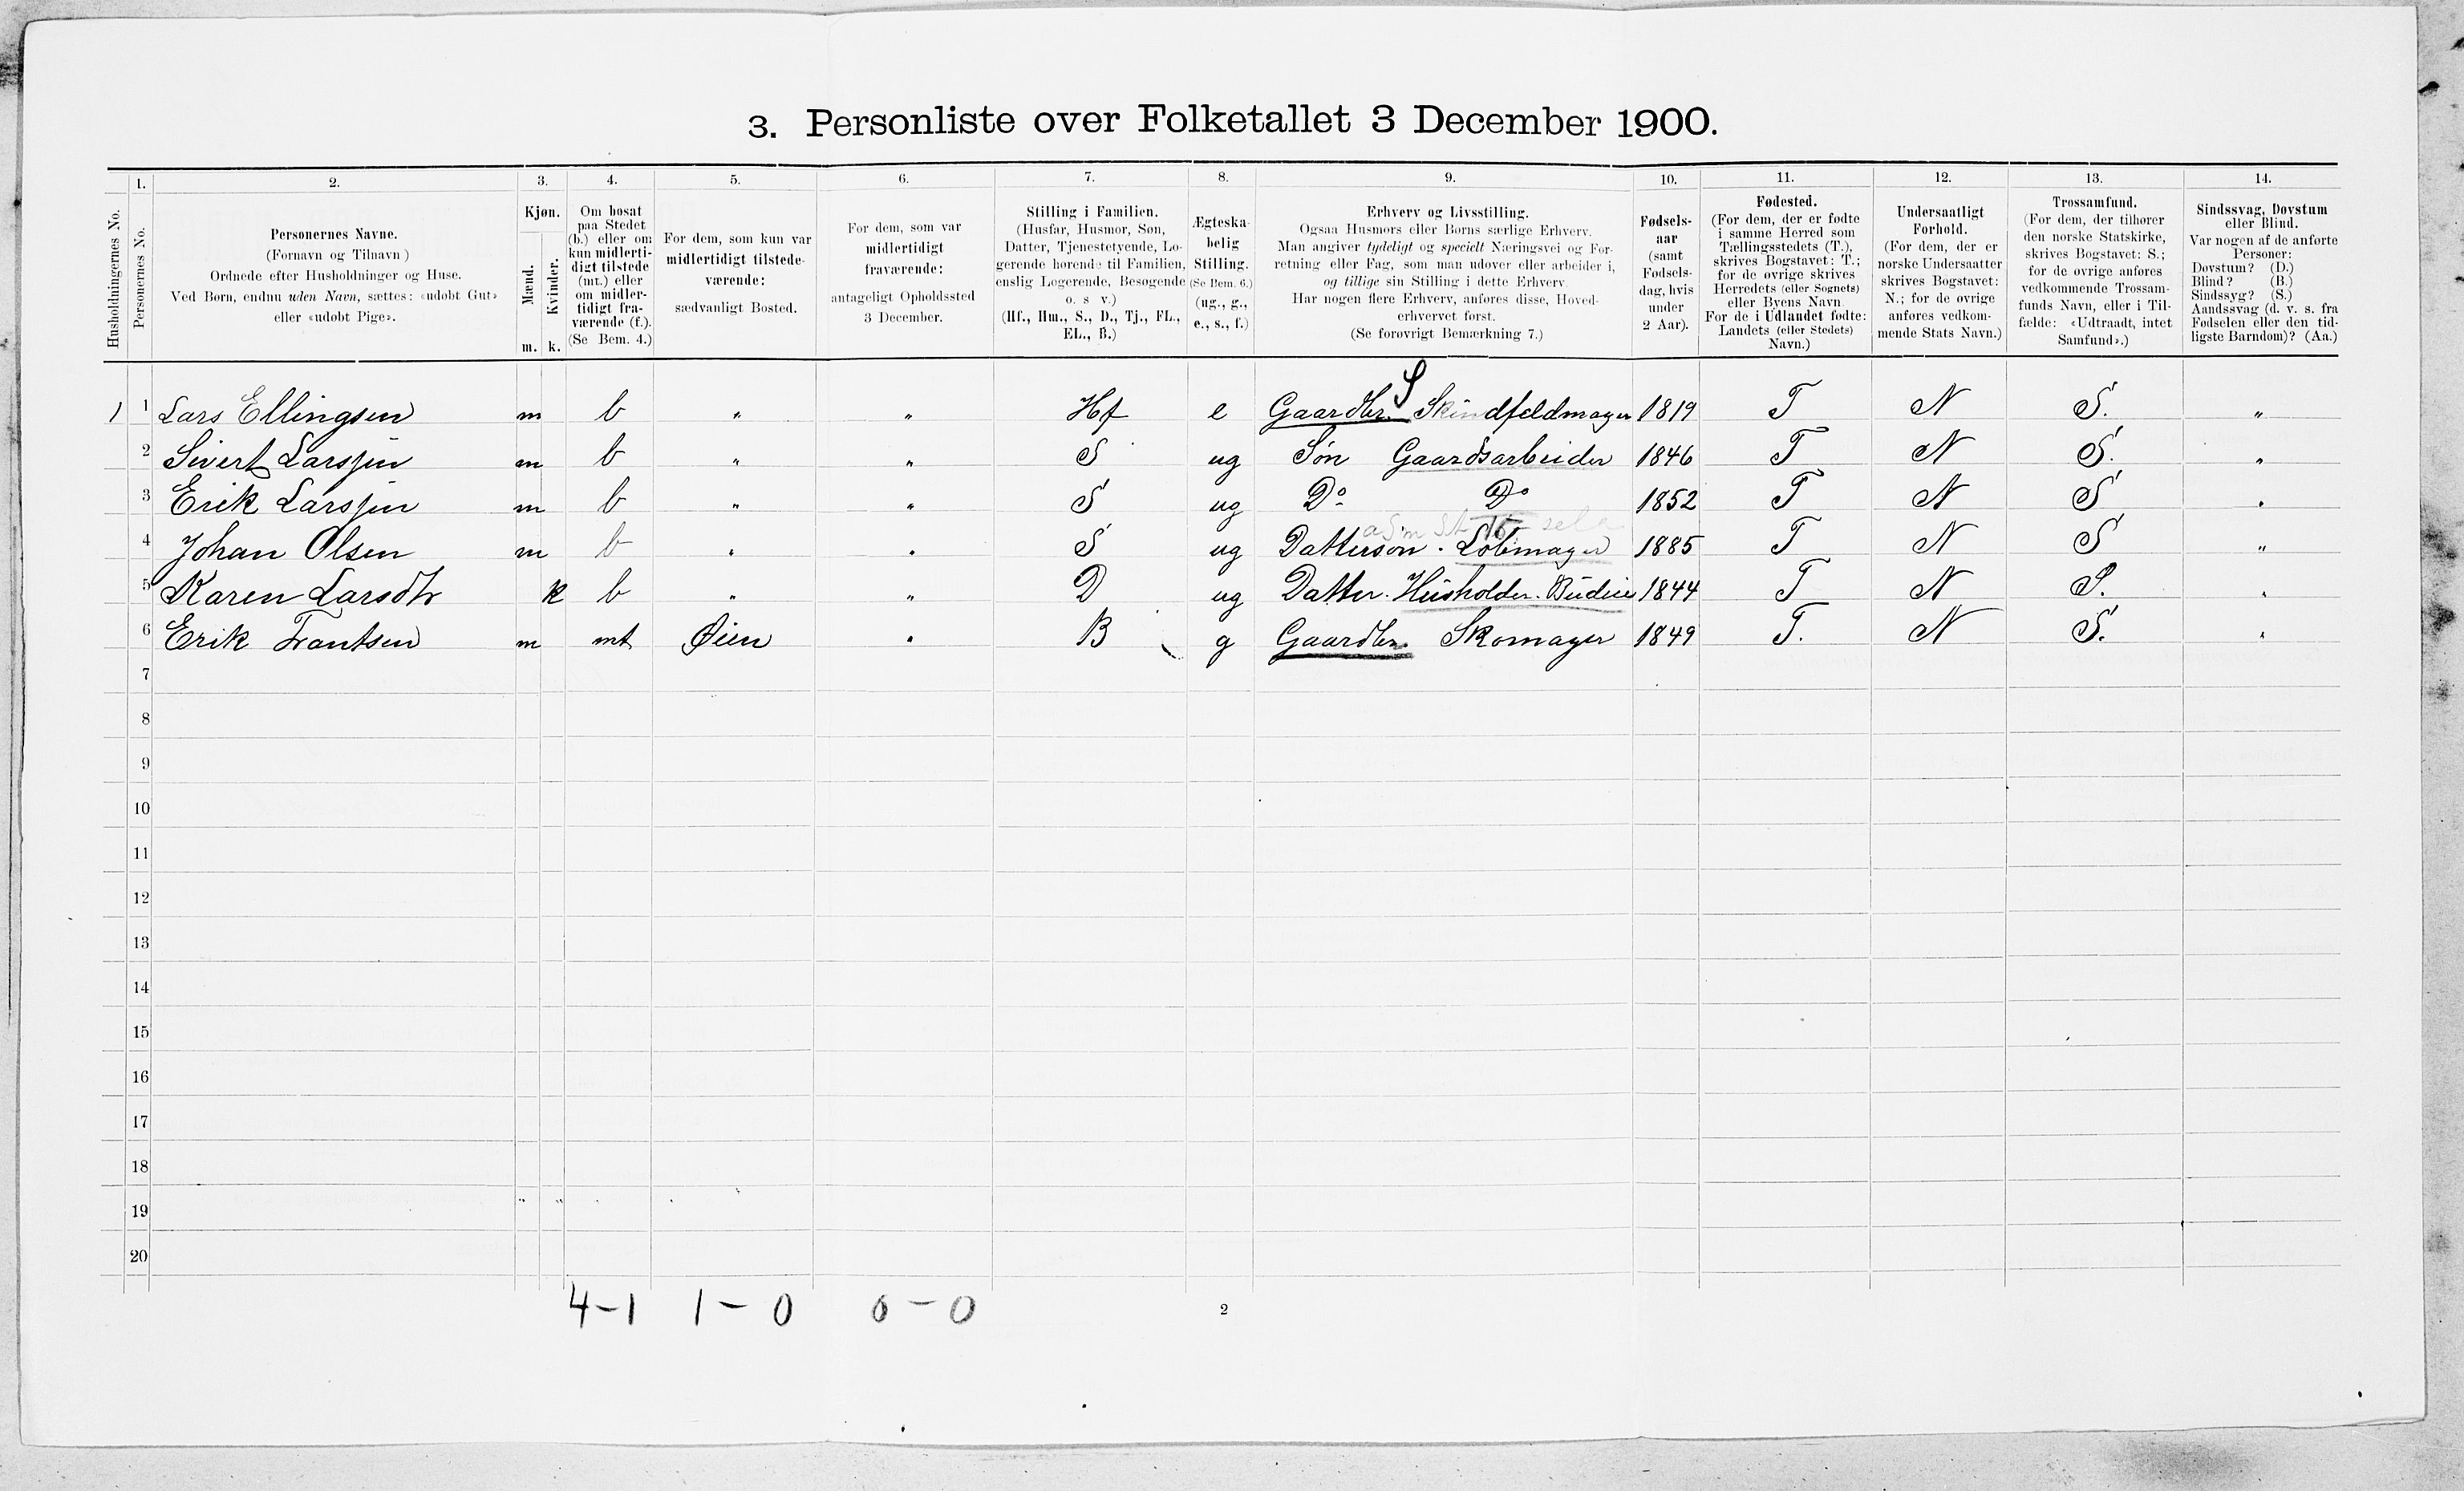 3. Personliste over Folketallet 3 December 1900.
1. 2. 3. 4. 5. 6. 7. 8. 9. 10. 11. 12. 13. 14.
Husholdningernes No.
Personernes No.
Personernes Navne.
(Fornavn og Tilnavn)
Ordnede efter Husholdninger og Huse.
Ved Børn, endnu uden Navn, sættes: «udøbt Gut»
eller «udøbt Pige».
Kjøn.
Mænd.
Kvinder.
m. k.
Om bosat
paa Stedet
(b.) eller om
kun midlerti-
digt tilstede
(mt.) eller
om midler-
tidigt fra-
værende (f.).
(Se Bem. 4.)
For dem, som kun var
midlertidigt tilstede-
værende:
sædvanligt Bosted.
For dem, som var
midlertidigt
fraværende:
antageligt Opholdssted
3 December.
Stilling i Familien.
(Husfar, Husmor, Søn,
Datter, Tjenestetyende, Lo-
gerende hørende til Familien,
enslig Logerende, Besøgende
o. s v.)
(Hf., Hm., S., D., Tj., FL.,
EL., B.)
Ægteska-
belig
Stilling.
(Se Bem. 6.)
(ug., g.,
e., s., f.)
Erhverv og Livsstilling.
Ogsaa Husmors eller Børns særlige Erhverv.
Man angiver tydeligt og specielt Næringsvei og For-
retning eller Fag, som man udøver eller arbeider i,
og tillige sin Stilling i dette Erhverv.
Har nogen flere Erhverv, anføres disse, Hoved-
erhvervet først.
(Se forøvrigt Bemærkning 7.)
Fødsels-
aar
(samt
Fødsels-
dag, hvis
under
2 Aar).
Fødested.
(For dem, der er fødte
i samme Herred som
Tællingsstedets (T.),
skrives Bogstavet: T.;
for de øvrige skrives
Herredets (eller Sognets)
eller Byens Navn.
For de i Udlandet fødte:
Landets (eller Stedets)
Navn.)
Undersaatligt
Forhold.
(For dem, der er
norske Undersaatter
skrives Bogstavet:
N.; for de øvrige
anføres vedkom-
mende Stats Navn.)
Trossamfund.
(For dem, der tilhører
den norske Statskirke,
skrives Bogstavet: S.;
for de øvrige anføres
vedkommende Trossam-
funds Navn, eller i Til-
fælde: «Udtraadt, intet
Samfund».)
Sindssvag, Døvstum
eller Blind.
Var nogen af de anførte
Personer:
Døvstum? (D.)
Blind? (B.)
Sindssyg? (S.)
Aandssvag (d. v. s. fra
Fødselen eller den tid-
ligste Barndom)? (Aa.)
1 1 Lars Ellingsen m b " " Hf e Gaardbr. S Skindfeldmager 1819 T N S. "
2 Sivert Larssen m b " " S ug Søn Gaardsarbeider 1846 T N S. "
3 Erik Larssen m b " " S ug Do Do 1852 T N S "
4 Johan Olsen m b " " S ug Datterson. 1885 T N S "
5 Karen Larsdtr k b " " D ug Datter. Husholder. Budeie 1844 T N S. "
6 Erik Frantsen m mt Øien " B g Gaardbr. Skomager 1849 T. N S. "
7
8
9
10
11
12
13
14
15
16
17
18
19
20
4-1 1-0 0-0
2